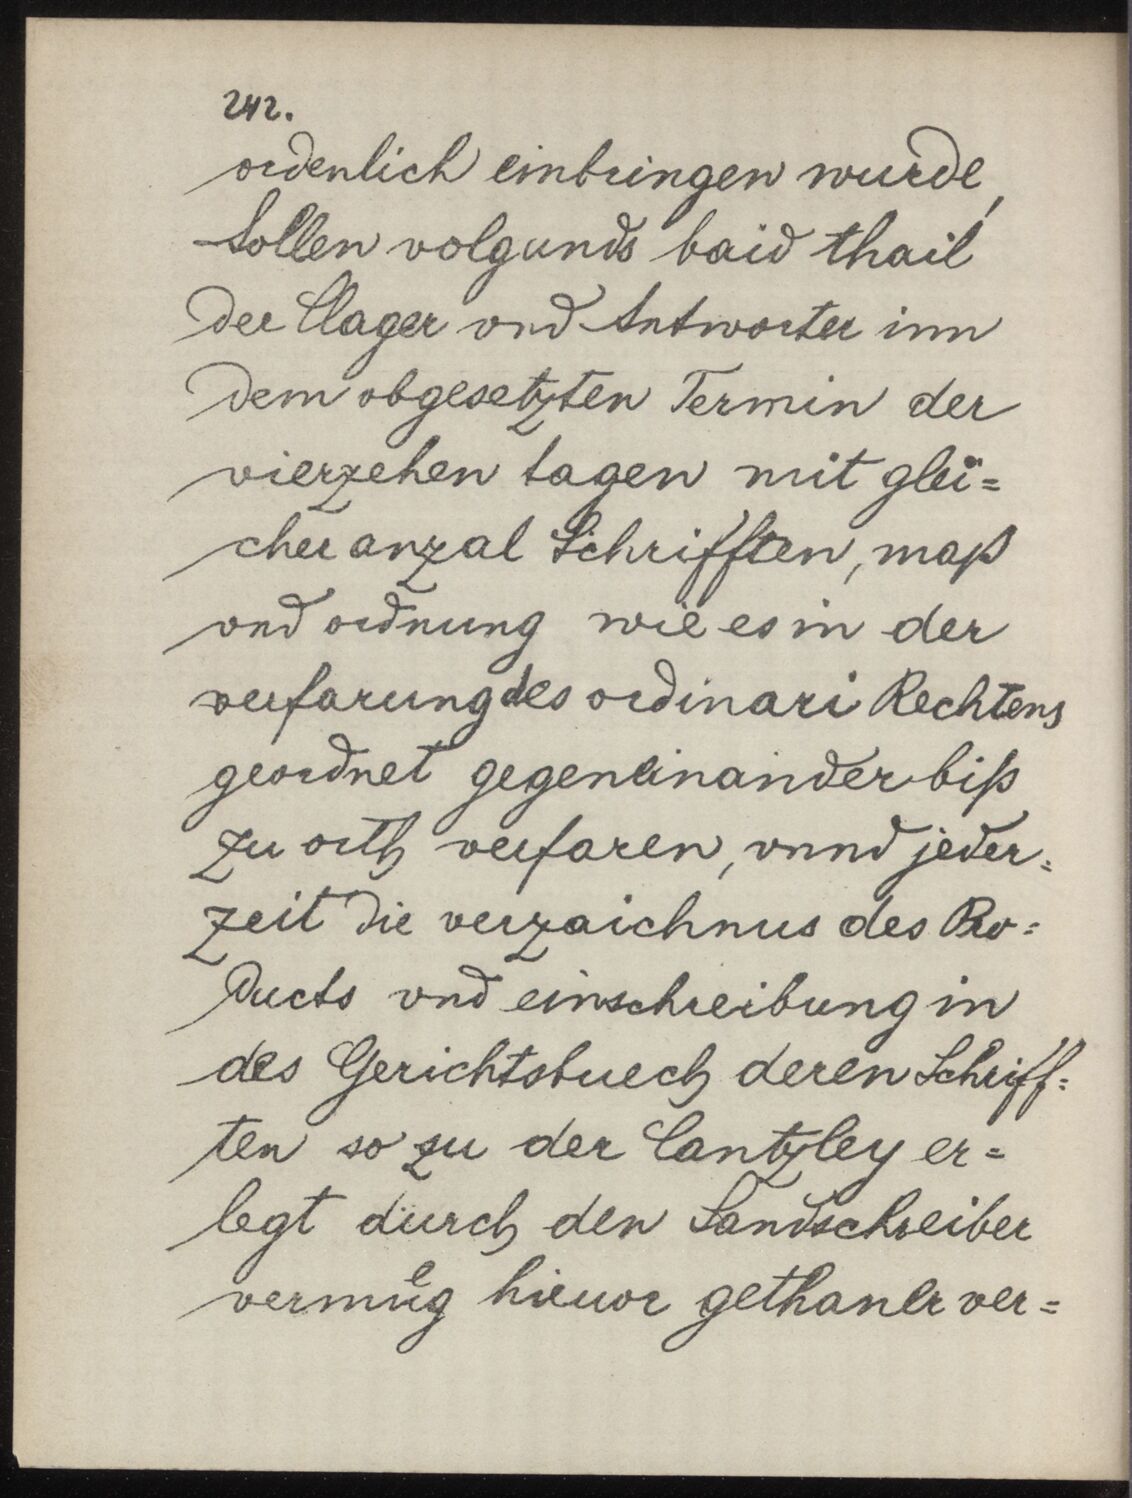 242.
ordenlich einbringen wurde,
Sollen volgunds baid thail
der Clager vnd Antworter inn
dem obgesetzten Termin der
vierzehen tagen mit glei=
cher anzal Schrifften, maß
vnd ordnung wie es in der
verfarung des ordinari Rechtens
geordnet gegeneinander biß
zu orth verfaren, vnnd jeder=
zeit die verzaichnus des Pro=
ducts vnd einschreibung in
des Gerichtsbuech deren Schriff=
ten so zu der Cantzley er=
legt durch den Landschreiber
vermüg hieuor gethaner ver=